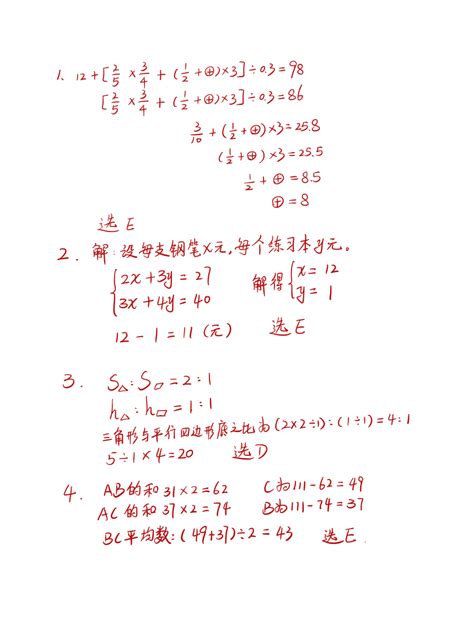 1. 12+[2/5×3/4+(1/2+⊕)×3]÷0.3=98
[2/5×3/4+(1/2+⊕)×3]÷0.3=86
3/10+(1/2+⊕)×3=25.8
(1/2+⊕)×3=25.5
1/2+⊕=8.5
⊕=8
选E
2. 解:设每支钢笔x元,每个练习本y元。
{2x+3y=27 解得{x=12
3x+4y=40 y=1
12-1=11(元) 选E
3. S△:S▱=2:1
h△:h▱=1:1
三角形与平行四边形底之比为(2×2÷1):(1÷1)=4:1
5÷1×4=20 选D
4. AB的和31×2=62 C为111-62=49
AC的和37×2=74 B为111-74=37
BC平均数:(49+37)÷2=43 选E.